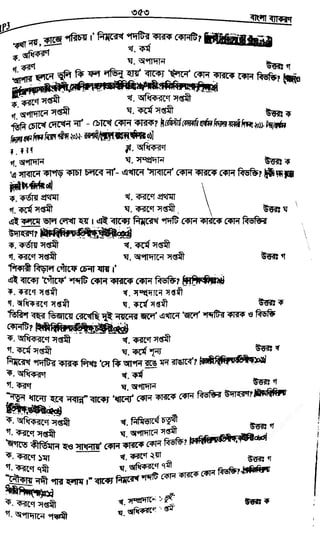 ৩৫৩
বাংলা ব্যাকরণ
'কথা নয়, কাজে পরিচয়।' নিম্নরেখ পদটির কারক কোনটি?
ক. অধিকরণ
খ. কর্ম
গ. করণ
ঘ. অপাদান
উত্তরঃ গ
হলনে তুলি কি ফল লভিনু হায়' বাক্যে 'ছলনে' কোন কারকে কোন বিভক্তি?
ক. করণে সপ্তমী
খ. অধিকরণে সপ্তমী
গ. অপাদানে সপ্তমী
ঘ. কর্মে সপ্তমী
উত্তরঃ ক
'তিনি চোখে দেখেন না' - চোখে কোন কারক?
খ. অধিকরণ
গ. অপাদান
ঘ. সম্প্রদান
উত্তরঃ ক
'এ সাবানে কাপড় কাচা চলবে না'- এখানে 'সাবানে' কোন কারকে কোন বিভক্তি?
ক. কর্তায় প্রথমা
খ. করণে প্রথমা
গ. কর্মে সপ্তমী
ঘ. করণে সপ্তমী
উত্তরঃ ঘ
এই কলমে ভাল লেখা হয়। এই বাক্যে নিম্নরেখ পদটি কোন কারকে কোন বিভক্তির
উদাহরণ?
ক. কর্তায় সপ্তমী
খ. কর্মে সপ্তমী
গ. করণে সপ্তমী
ঘ. অপাদানে সপ্তমী
উত্তরঃ গ
'শিকারী বিড়াল গোঁফে চেনা যায়।'
এই বাক্যে 'গোঁফে' পদটি কোন কারকে কোন বিভক্তি?
ক. করণে সপ্তমী
খ. সম্প্রদানে সপ্তমী
গ. অধিকরণে সপ্তমী
ঘ. কর্মে সপ্তমী
উত্তরঃ ক
'তিরিশ বছর ভিজায়ে রেখেছি দুই নয়নের জলে' এখানে 'জলে' পদটির কারক ও বিভক্তি
কোনটি?
ক. অধিকরণে সপ্তমী
খ. করণে সপ্তমী
গ. কর্মে সপ্তমী
ঘ. কর্মে শূন্য
উত্তরঃ খ
নিম্নরেখ পদটির কারক লিখুঃ 'সে কি আপন রঙে মন রাঙাবে'?
ক. অধিকরণ
খ. কর্ম
গ. করণ
ঘ. অপাদান
উত্তরঃ গ
"নতুন ধান্যে হবে নবান্ন" বাক্যে 'ধান্যে' কোন কারকে কোন বিভক্তির উদাহরণ?
ক. অধিকরণে সপ্তমী
খ. নিমিত্তার্থে চতুর্থী
গ. করণে সপ্তমী
ঘ. অপাদানে সপ্তমী
উত্তরঃ গ
'জগতে কীর্তিমান হও সাধনায়' কোন কারকে কোন বিভক্তি?
ক. করণে ১মা
খ. করণে ২য়া
গ. করণে ৭মী
ঘ. অধিকরণে ৭মী
উত্তরঃ গ
"নৌকায় নদী পার হলাম।" বাক্যে নিম্নরেখ পদটি কোন কারকে কোন বিভক্তি?
ক. করণে সপ্তমী
গ. অপাদানে পঞ্চমী
উত্তরঃ ক